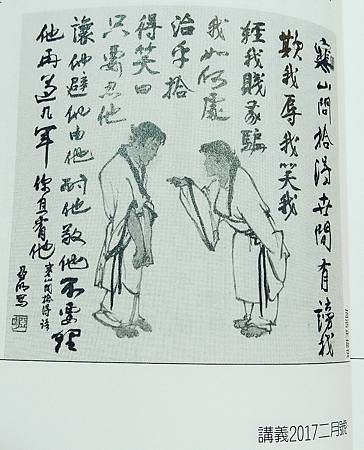 寒山問拾得世間有謗我
欺我辱我笑我
輕我賤我騙
我如何處
治乎拾
得笑曰
只要忍他
讓他避他由他耐他敬他不要理
他再過几年你且看他
寒山問拾得語
講義2017二月號